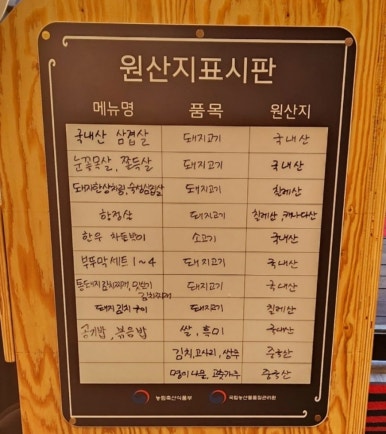 원산지표시판
메뉴명 품목 원산지
국내산 삼겹살 돼지고기 국내산
눈꽃목살, 쫄득살 돼지고기 국내산
돼지한상차림, 숙성삼겹살 돼지고기 칠레산
항정살 돼지고기 칠레산, 캐나다산
한우 차돌박이 소고기 국내산
부뚜막세트 1~4 돼지고기 국내산
통돼지김치찌개, 돼지고기 국내산
김치찌개
돼지김치구이 돼지고기 칠레산
공기밥, 볶음밥 쌀, 흑미 국내산
김치, 고사리, 쌈무 중국산
명이나물, 고춧가루 중국산
농림축산식품부 국립농산물품질관리원